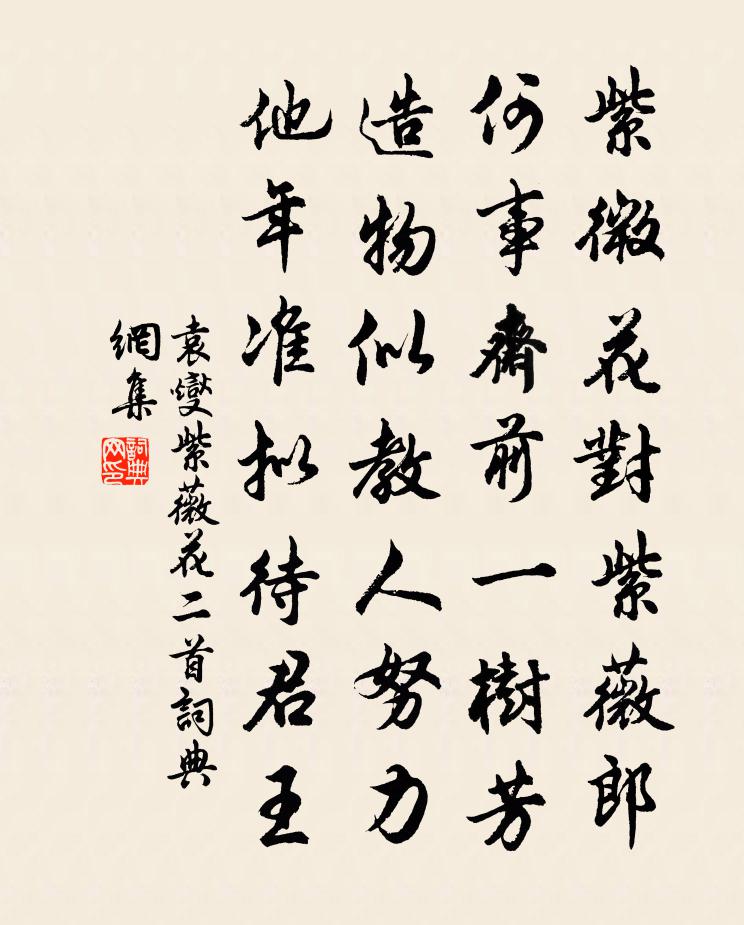 紫微花對紫薇郎
何事齋前一樹芳
造物似教人努力
他年准拟待君王
袁燮紫薇花二首詞典
網集
詞典
网印